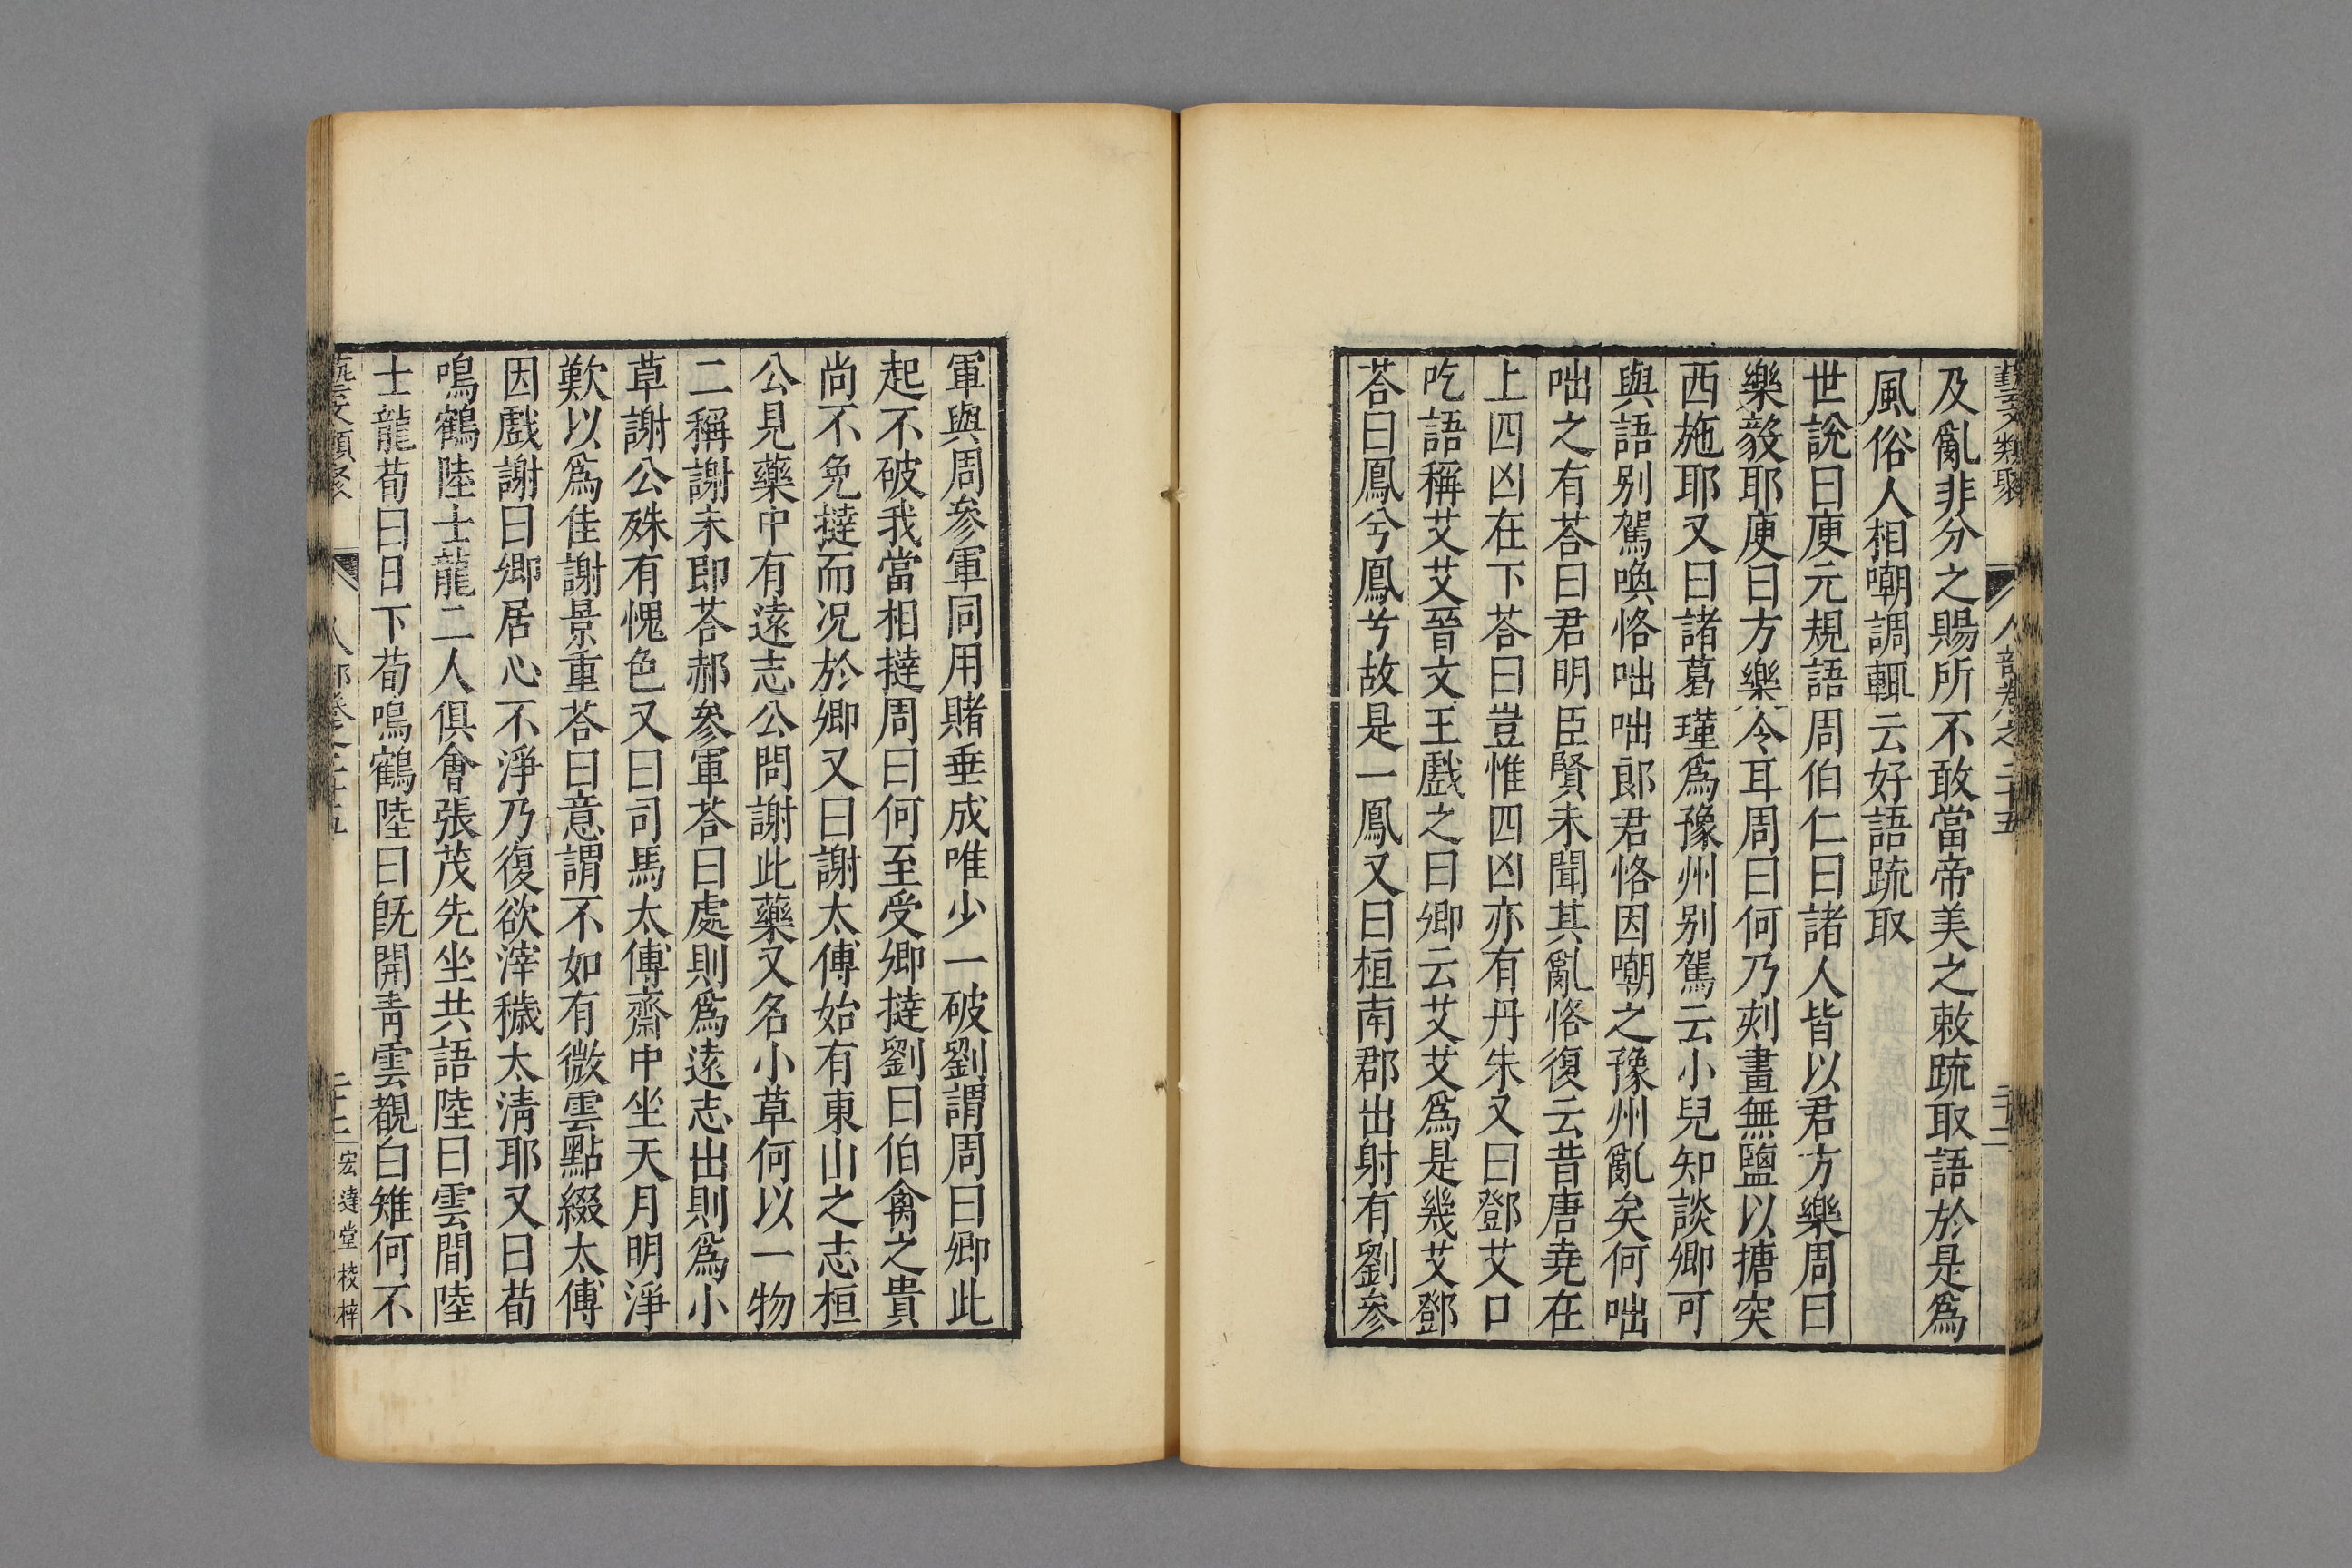 藝文類聚 人部卷之二十五 二十二
及亂非分之賜所不敢當帝美之敕䟽取語於是爲
風俗人相嘲調輒云好語䟽取
世說曰庾元規語周伯仁曰諸人皆以君方樂周曰
樂毅耶庾曰方樂令耳周曰何乃刻畫無鹽以搪突
西施耶又曰諸葛瑾爲豫州别駕云小兒知談卿可
與語别駕喚恪咄咄郎君恪因嘲之豫州亂矣何咄
咄之有荅曰君明臣賢未聞其亂恪復云昔唐堯在
上四凶在下荅曰豈惟四凶亦有丹朱又曰鄧艾口
吃語稱艾艾晉文王戲之曰卿云艾艾爲是幾艾鄧
荅曰鳳兮鳳兮故是一鳳又曰桓南郡出射有劉參
軍與周參軍同用賭垂成唯少一破劉謂周曰卿此
起不破我當相撻周曰何至受卿撻劉曰伯禽之貴
尚不免撻而况於卿又曰謝太傅始有東山之志桓
公見藥中有遠志公問謝此藥又名小草何以一物
二稱謝未即荅郝參軍荅曰處則爲遠志出則爲小
草謝公殊有愧色又曰司馬太傅齋中坐天月明淨
歎以爲佳謝景重荅曰意謂不如有微雲點綴太傅
因戲謝曰卿居心不淨乃復欲滓穢太清耶又曰荀
鳴鶴陸士龍二人俱會張茂先坐共語陸曰雲間陸
士龍荀曰日下荀鳴鶴陸曰旣開靑雲覩白雉何不
藝文類聚 人部卷之二十五 二十三 宏達堂校梓